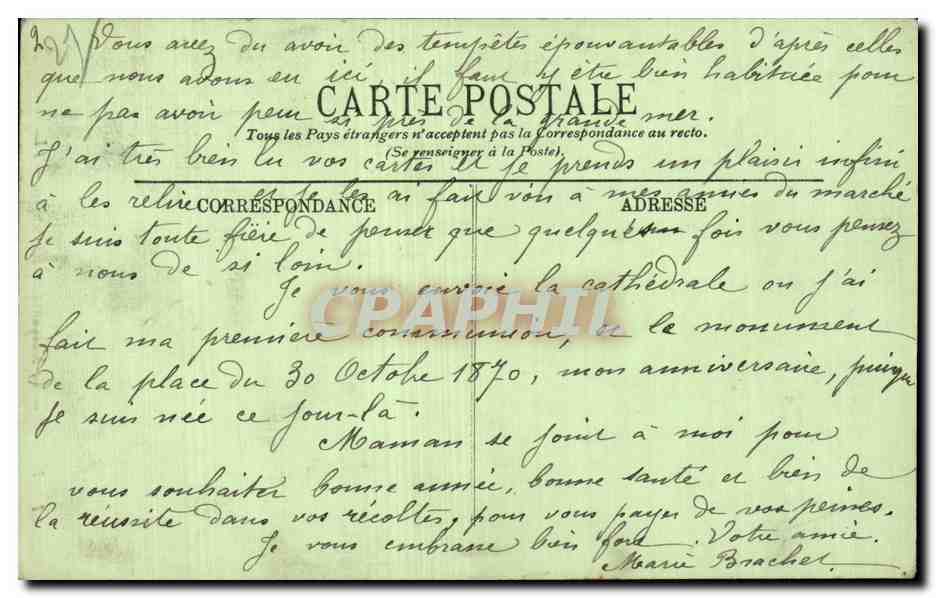 2
Vous avez du avoir des tempêtes épouvantables d'après celles
que nous avons eu ici, il faut y être bien habituée pour
CARTE POSTALE
ne pas avoir peur si près de la grande mer.
Tous les Pays étrangers n'acceptent pas la Correspondance au recto.
(Se renseigner à la Poste).
J'ai très bien lu vos cartes et je prends un plaisir infini
à les relire, et je les ai fait voir à mes amies du marché
CORRESPONDANCE
ADRESSE
Je suis toute fière de penser que quelque fois vous pensez
à nous de si loin.
Je vous envoie la cathédrale ou j'ai
CPAPHIL
fait ma première communion, et le monument
de la place du 30 Octobre 1870, mon anniversaire, puisque
je suis née ce jour-là.
Maman se joint à moi pour
vous souhaiter bonne année, bonne santé et bien de
la réussite dans vos récoltes, pour vous payer de vos peines.
Je vous embrasse bien fort. Votre amie.
Marie Brachet.